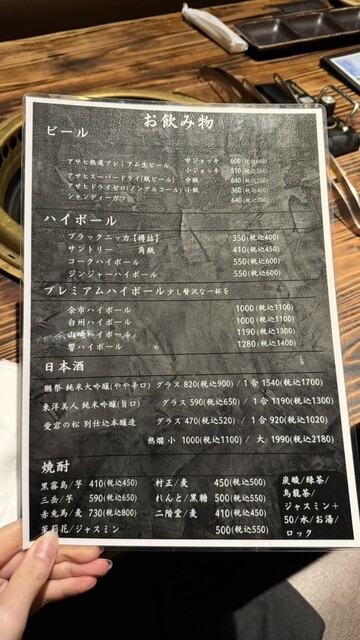 お飲み物
ビール
アサヒ熟選プレミアム生ビール 中ジョッキ 600(税込660)
小ジョッキ 510(税込560)
アサヒスーパードライ(瓶ビール) 中瓶 640(税込700)
アサヒドライゼロ(ノンアルコール) 小瓶 360(税込400)
シャンディーガフ 640(税込700)
ハイボール
ブラックニッカ【樽詰】 350(税込400)
サントリー 角瓶 410(税込450)
コークハイボール 550(税込600)
ジンジャーハイボール 550(税込600)
プレミアムハイボール少し贅沢な一杯を
余市ハイボール 1000(税込1100)
白州ハイボール 1000(税込1100)
山崎ハイボール 1190(税込1300)
響ハイボール 1280(税込1400)
日本酒
獺祭 純米大吟醸(やや辛口) グラス 820(税込900) / 1合 1540(税込1700)
東洋美人 純米吟醸(旨口) グラス 590(税込650) / 1合 1190(税込1300)
愛宕の松 別仕込本醸造 グラス 470(税込520) / 1合 920(税込1020)
熱燗 小 1000(税込1100) / 大 1990(税込2180)
焼酎
黒霧島/芋 410(税込450) 村正/麦 450(税込500)
三岳/芋 590(税込650) れんと/黒糖 500(税込550)
赤兎馬/麦 730(税込800) 二階堂/麦 410(税込450)
茉莉花/ジャスミン 500(税込550)
炭酸/緑茶/
烏龍茶/
ジャスミン+
50/水/お湯/
ロック